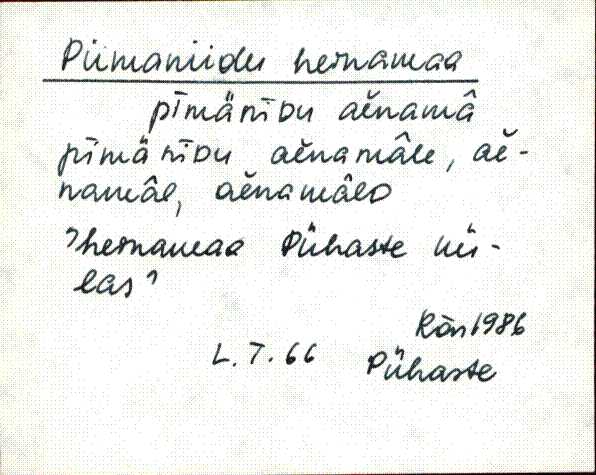 Piimaniidu heinamaa
pīmänīDu aĕnamâ
pīmänīDu aĕnamâle, aĕ-
namâl, aĕnamâlD
?heinamaa Pühaste kü-
las?
Rõn 1986
L. T. 66 Pühaste